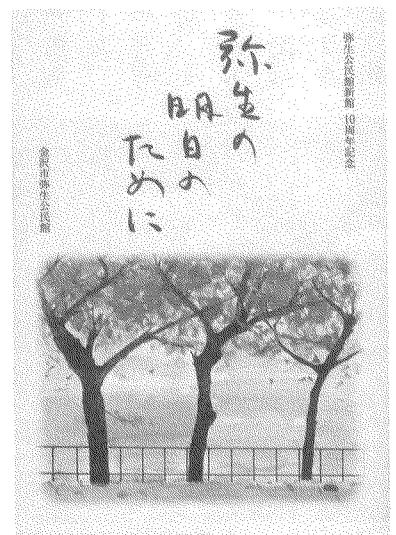 弥生公民館新館 10周年記念
弥生の
明日の
ために
金沢市弥生公民館